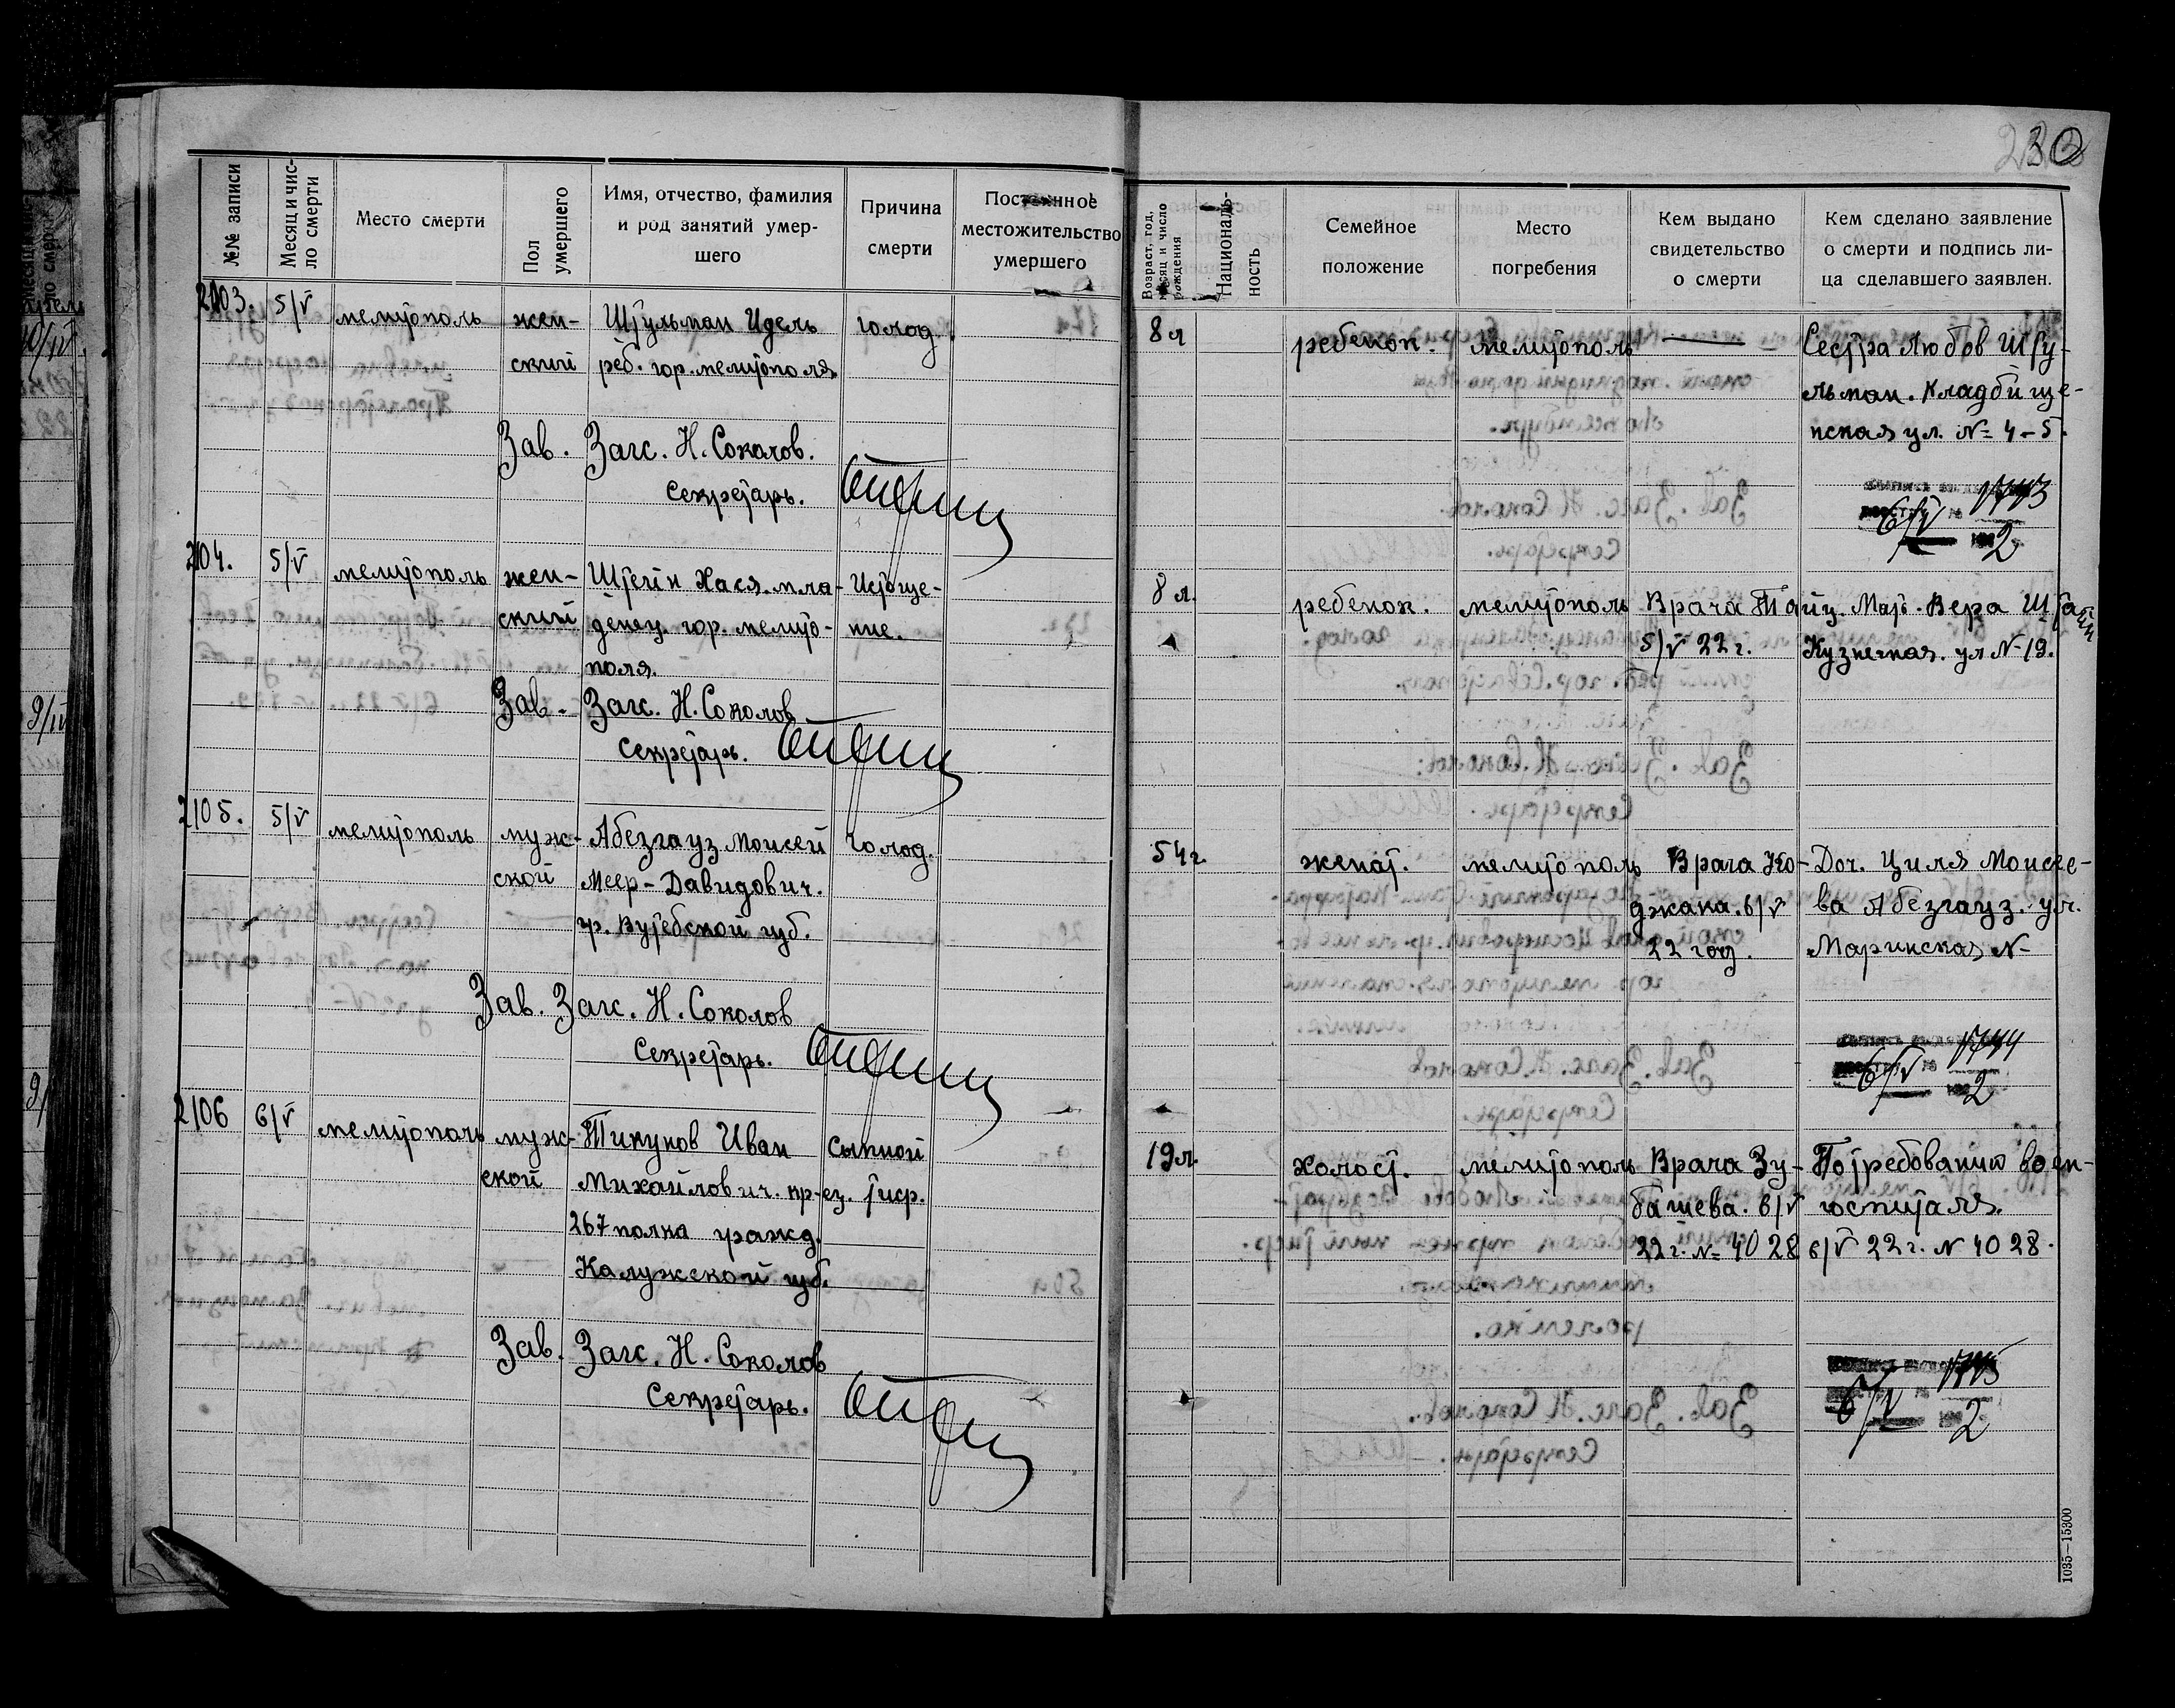 230
№№ записи
Месяц и чис-
ло смерти
Место смерти
Пол
умершего
Имя, отчество, фамилия
и род занятий умер-
шего
Причина
смерти
Постоянное
местожительство
умершего
Возраст, год,
месяц и число
рождения
Националь-
ность
Семейное
положение
Место
погребения
Кем выдано
свидетельство
о смерти
Кем сделано заявление
о смерти и подпись ли-
ца сделавшего заявлен.
2103.
5/V
мелитополь
жен-
ский
Штульман Идель
реб. гор. мелитополя
голод.
8 л
ребенок.
мелитополь
—
Сестра Любов Шту-
льман. Кладбище-
нская ул. № 4-5.
Зав. Загс. Н. Соколов.
Секретарь.
6/V 1743
2
2104.
5/V
мелитополь
жен-
ский
Штейн Хася. мла-
денец гор. мелито-
поля.
Истоще-
ние.
8 л.
ребенок.
мелитополь
Врача Тайц.
5/V 22 г.
Мать. Вера Штайн
Кузнечная. ул № 19.
Зав. Загс. Н. Соколов
Секретарь.
2105.
5/V
мелитополь
муж-
ской
Абезгауз Моисей
Меер-Давидович.
гр. Вутебской губ.
голод.
54 г.
женат.
мелитополь
Врача Ко-
джака. 6/V
22 год.
Доч. Циля Моисее-
ва Абезгауз. ул.
Маринская №
Зав. Загс. Н. Соколов
Секретарь.
6/V 1744
2
2106
6/V
мелитополь
муж-
ской
Тикунов Иван
Михайлович. кр-ец.
267 полка гражд.
Калужской губ.
Сыпной
тиф.
19 л.
холост.
мелитополь
Врача Зу-
башева. 6/V
22 г. № 4028
По требованию воен-
госпиталя.
6/V 22 г. № 4028.
Зав. Загс. Н. Соколов
Секретарь.
6/V 1745
2
1035—15300